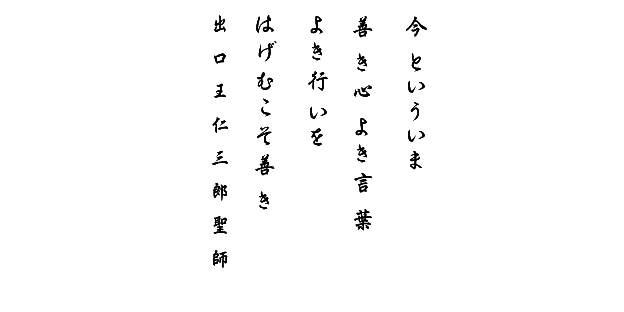 今といういま
善き心よき言葉
よき行いを
はげむこそ善き
出口王仁三郎聖師